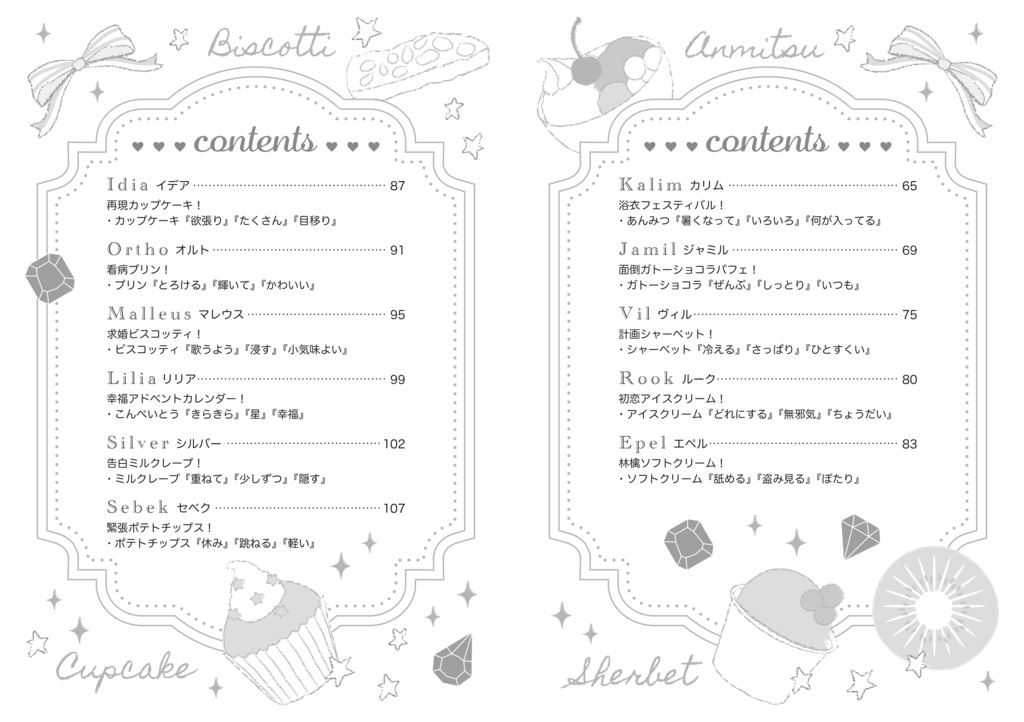 Anmitsu
contents
Kalim カリム 65
浴衣フェスティバル!
・あんみつ『暑くなって』『いろいろ』『何が入ってる』
Jamil ジャミル 69
面倒ガトーショコラパフェ!
・ガトーショコラ『ぜんぶ』『しっとり』『いつも』
Vil ヴィル 75
計画シャーベット!
・シャーベット『冷える』『さっぱり』『ひとすくい』
Rook ルーク 80
初恋アイスクリーム!
・アイスクリーム『どれにする』『無邪気』『ちょうだい』
Epel エペル 83
林檎ソフトクリーム!
・ソフトクリーム『舐める』『盗み見る』『ぽたり』
Sherbet
Biscotti
contents
Idia イデア 87
再現カップケーキ!
・カップケーキ『欲張り』『たくさん』『目移り』
Ortho オルト 91
看病プリン!
・プリン『とろける』『輝いて』『かわいい』
Malleus マレウス 95
求婚ビスコッティ!
・ビスコッティ『歌うよう』『浸す』『小気味よい』
Lilia リリア 99
幸福アドベントカレンダー!
・こんぺいとう『きらきら』『星』『幸福』
Silver シルバー 102
告白ミルクレープ!
・ミルクレープ『重ねて』『少しずつ』『隠す』
Sebek セベク 107
緊張ポテトチップス!
・ポテトチップス『休み』『跳ねる』『軽い』
Cupcake